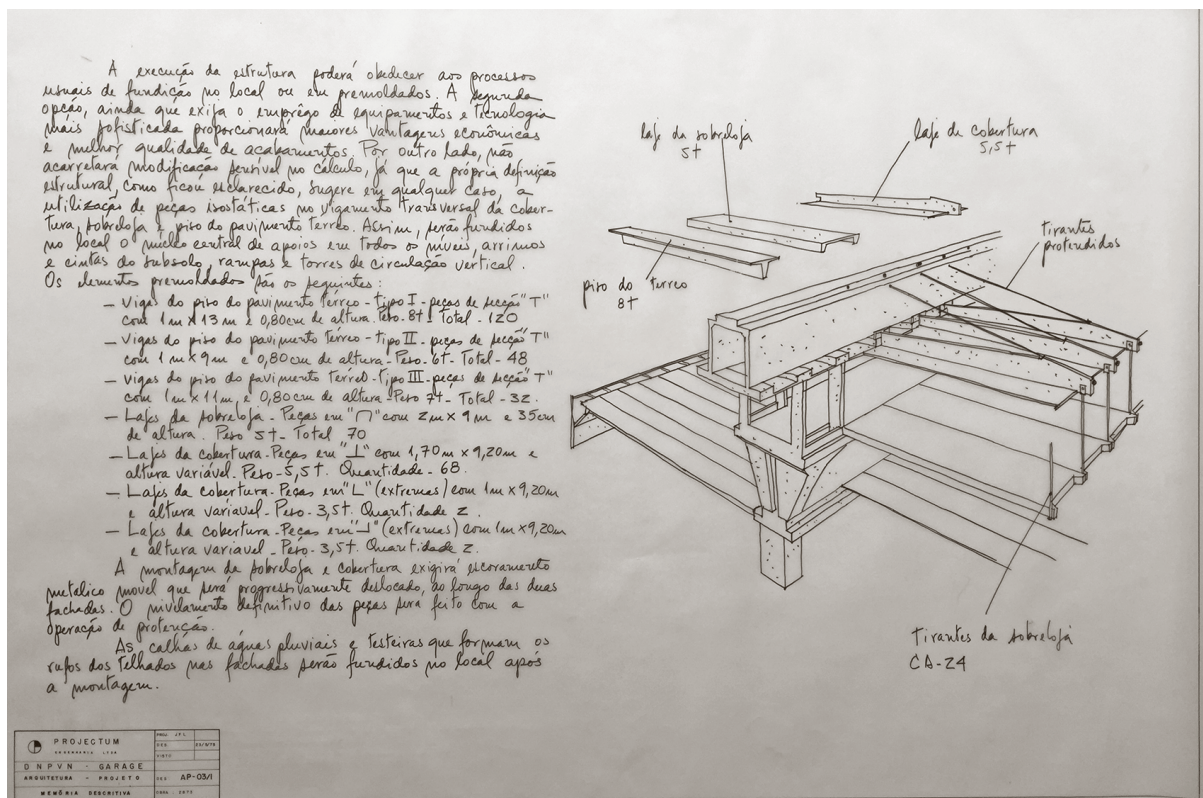 A execução da estrutura poderá obedecer aos processos
usuais de fundição no local ou em premoldados. A segunda
opção, ainda que exija o emprêgo de equipamentos e tecnologia
mais sofisticada proporcionará maiores vantagens econômicas
e melhor qualidade de acabamentos. Por outro lado, não
acarretará modificação sensível no cálculo, já que a própria definição
estrutural, como ficou esclarecido, sugere em qualquer caso, a
utilização de peças isostáticas no vigamento transversal da cober-
tura, sobreloja e piso do pavimento terreo. Assim, serão fundidos
no local o nucleo central de apoios em todos os níveis, arrimos
e cintas do subsolo, rampas e torres de circulação vertical.
Os elementos premoldados são os seguintes:
— Vigas do piso do pavimento térreo - tipo I - peças de secção "T"
com 1m x 13m e 0,80cm de altura. Peso - 8t - Total - 120
— Vigas do piso do pavimento térreo - tipo II - peças de secção "T"
com 1m x 9m e 0,80cm de altura - Peso - 6t - Total - 48
— Vigas do piso do pavimento térreo - tipo III - peças de secção "T"
com 1m x 11m, e 0,80cm de altura - Peso 7t - Total - 32.
— Lajes da sobreloja - Peças em "⊓" com 2m x 9m e 35cm
de altura. Peso 5t - Total 70
— Lajes da cobertura - Peças em "⊥" com 1,70m x 9,20m e
altura variável - Peso - 5,5t. Quantidade - 68.
— Lajes da cobertura - Peças em "L" (extremas) com 1m x 9,20m
e altura variavel - Peso - 3,5t. Quantidade 2.
— Lajes da cobertura - Peças em "⅃" (extremas) com 1m x 9,20m
e altura variavel - Peso - 3,5t. Quantidade 2.
A montagem da sobreloja e cobertura exigirá escoramento
metalico movel que será progressivamente deslocado, ao longo das duas
fachadas. O nivelamento definitivo das peças sera feito com a
operação de protenção.
As calhas de águas pluviais e testeiras que formam os
rufos dos telhados nas fachadas serão fundidos no local após
a montagem.
laje da sobreloja
5t
laje de cobertura
5,5t
tirantes
protendidos
piso do terreo
8t
tirantes da sobreloja
CA-24
PROJECTUM
ENGENHARIA LTDA
DNPVN - GARAGE
ARQUITETURA - PROJETO
MEMÓRIA DESCRITIVA
DES.
VISTO
AP-03/1